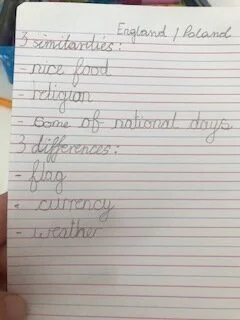 England / Poland
3 similarities:
- nice food
- religion
- some of national days
3 differences:
- flag
- currency
- weather